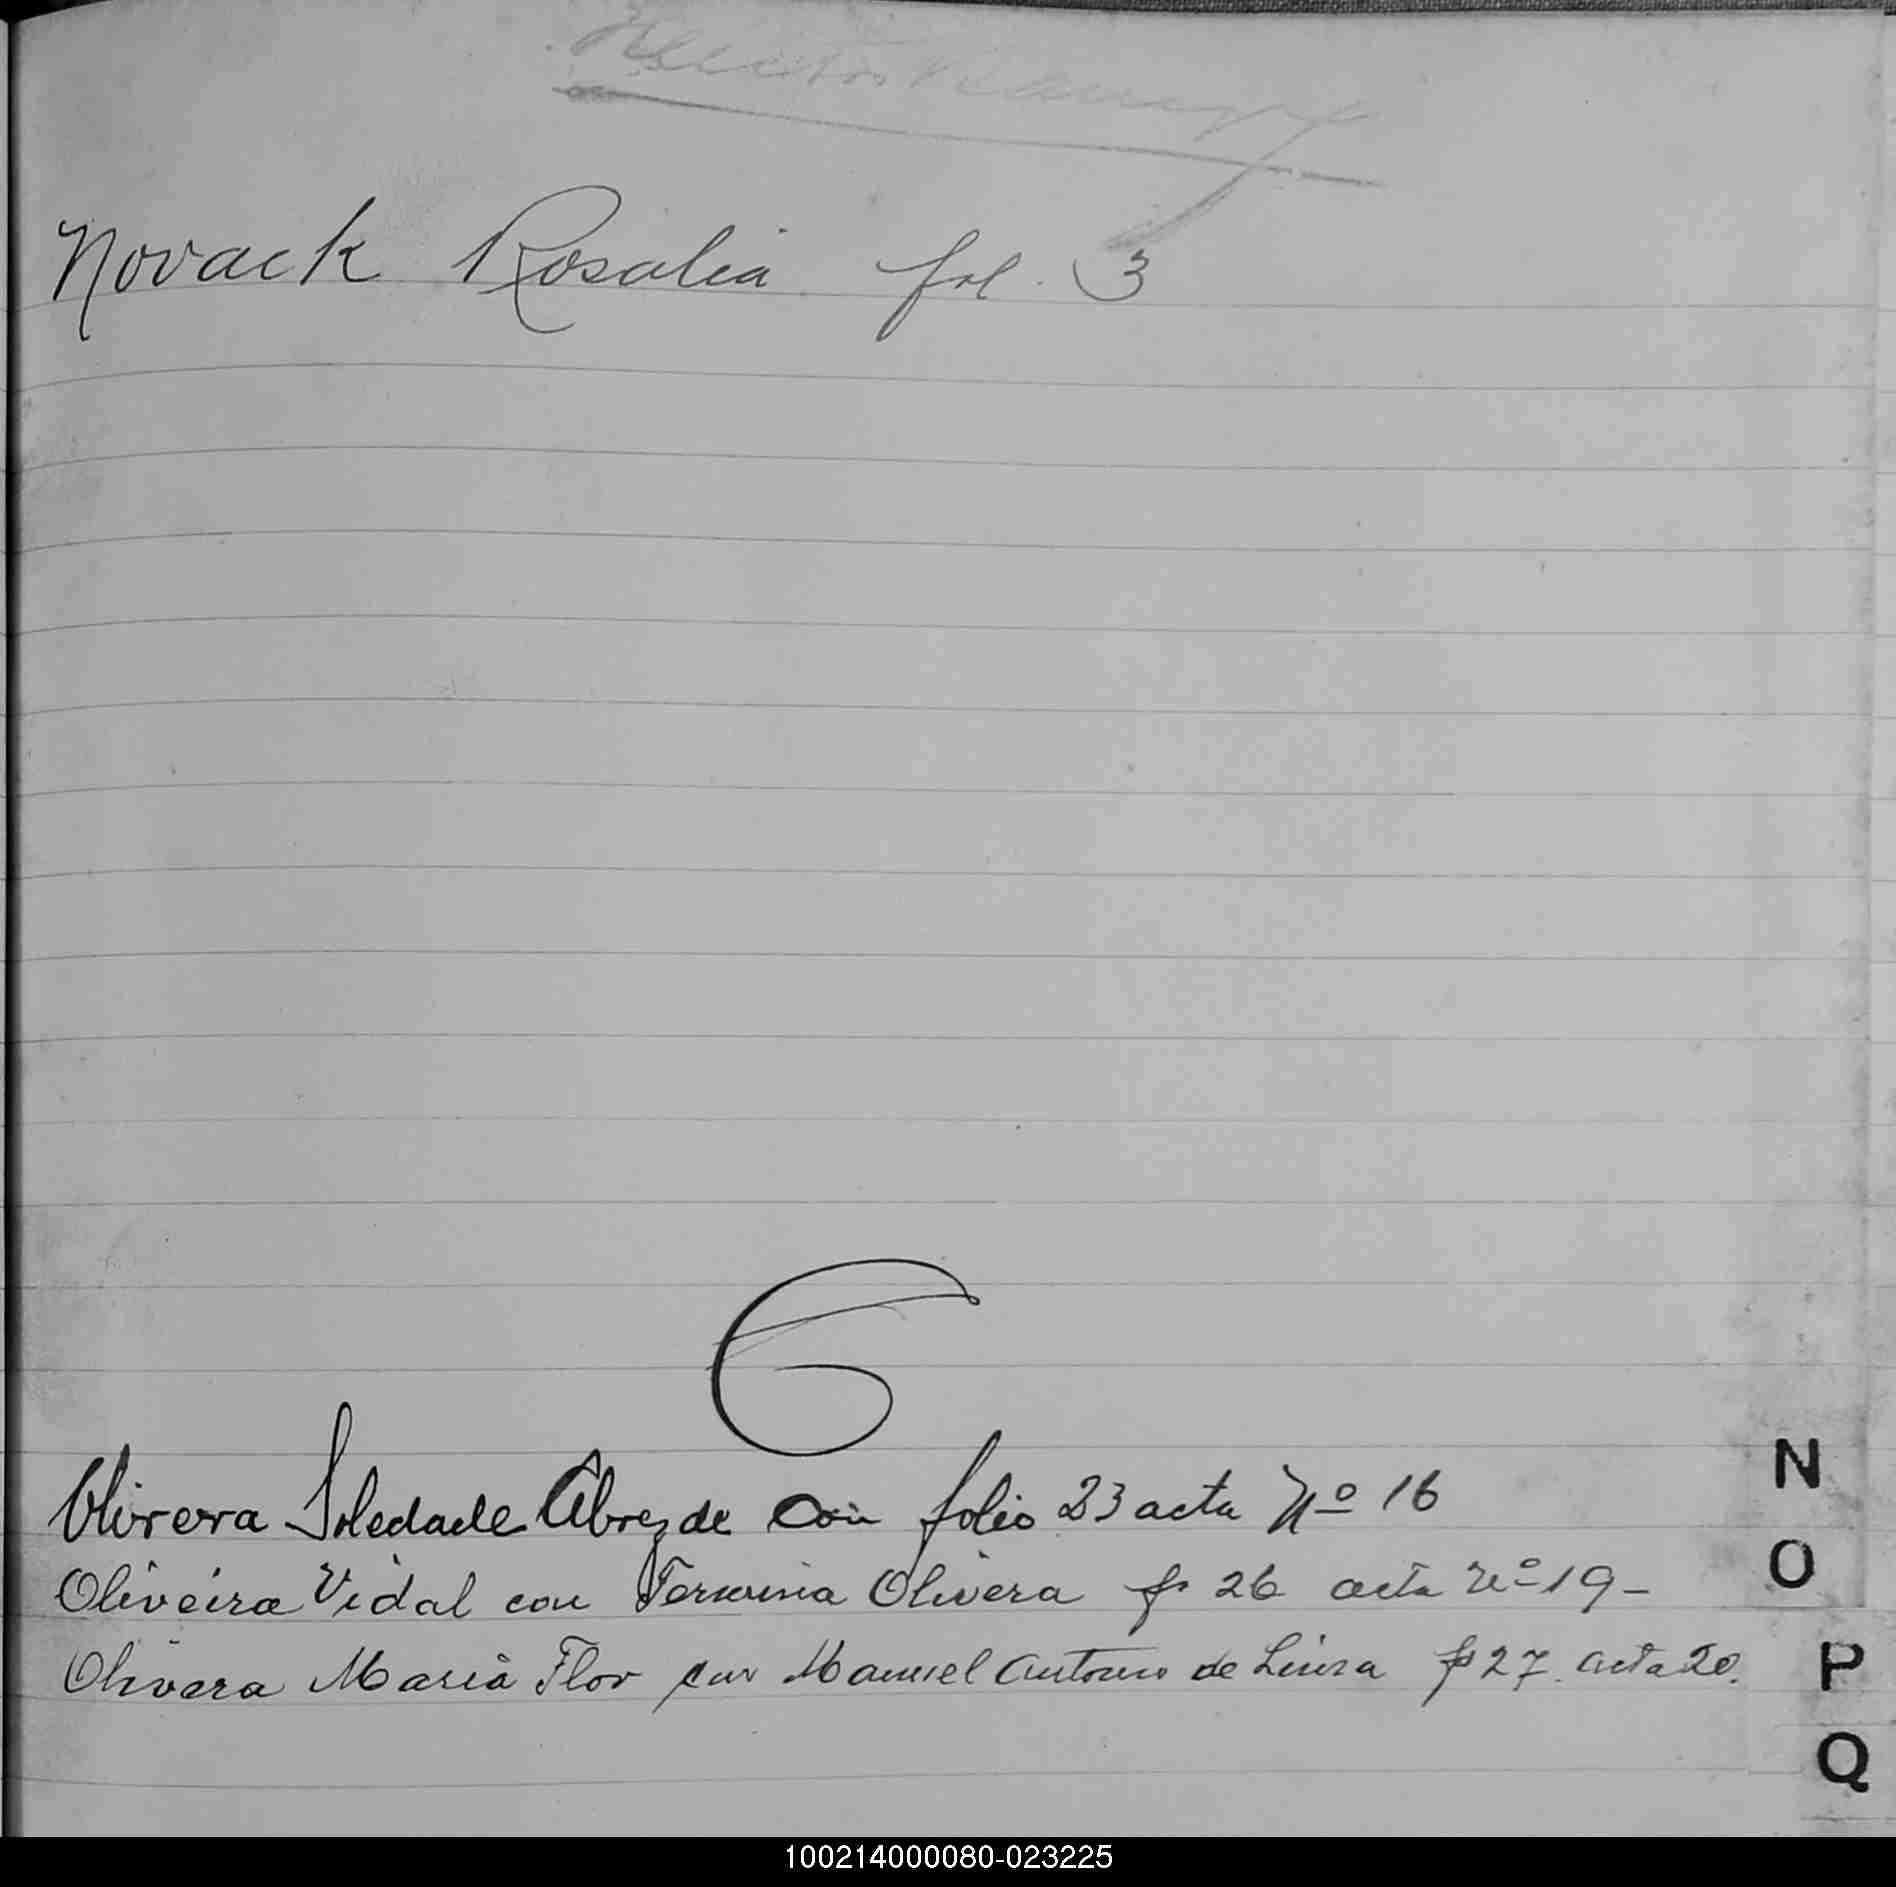 Novack Rosalia fol. 3
Olivera Soledade Abrez de con folio 23 acta Nº 16
Oliveira Vidal con Olivera fº 26 acta Nº 19-
Olivera Maria Flor con Manuel Antonio de Lima fº 27. acta 20.
N
O
P
Q
100214000080-023225